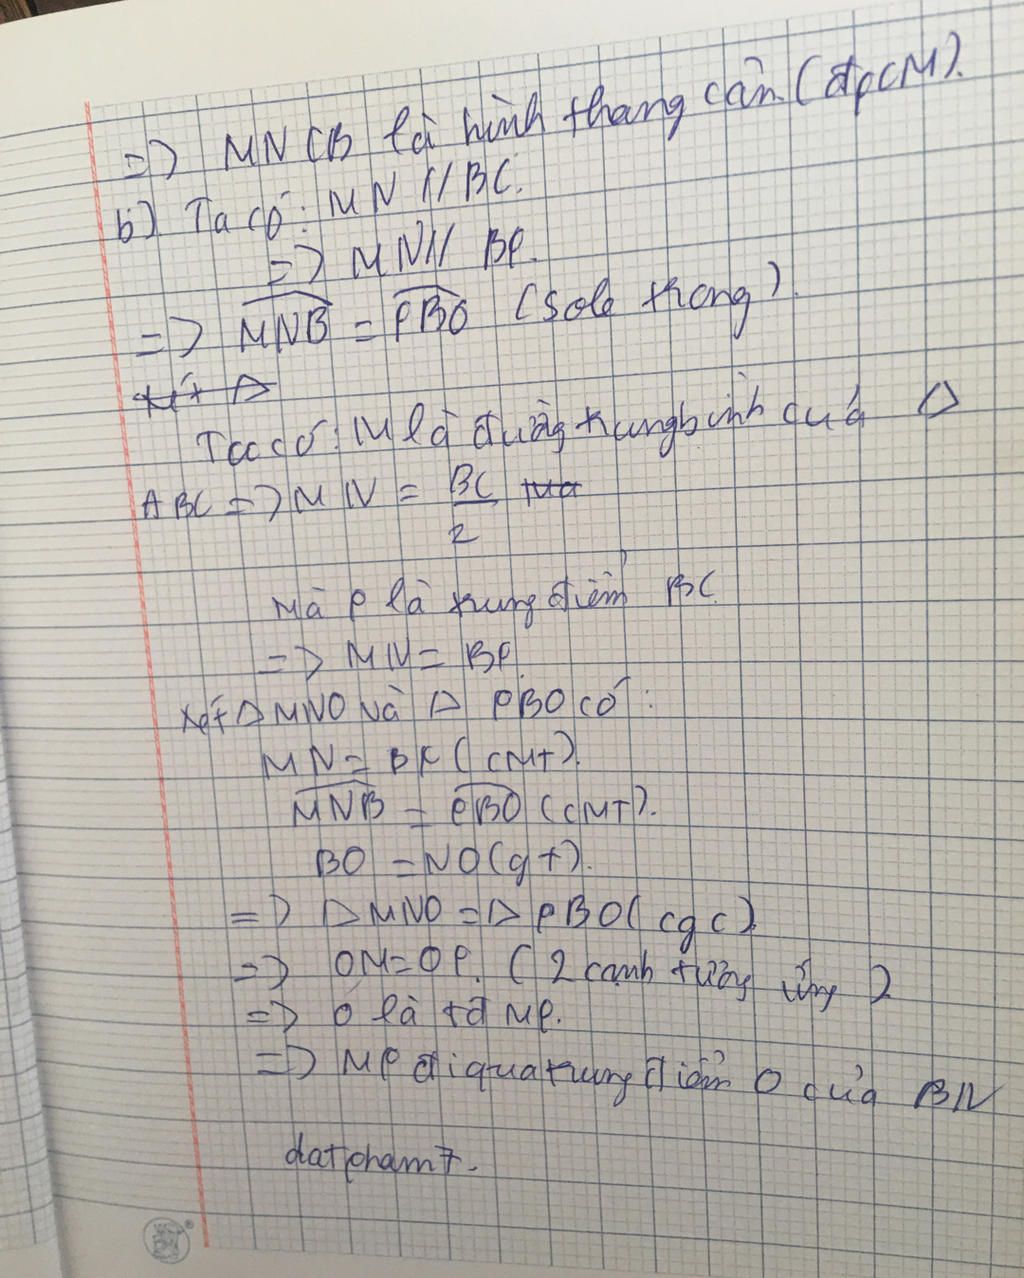 => MNCB là hình thang cân (đpCM).
b) Ta có: MN // BC.
=> MN // BP.
=> MNB = PBO (sole trong)
Xét Δ
Ta có: M là đường trung bình của Δ
ABC => MN = BC/2 mà
Mà P là trung điểm BC
=> MN = BP
Xét Δ MNO và Δ PBO có:
MN = BP (CMT).
MNB = PBO (CMT).
BO = NO (gt).
=> Δ MNO = Δ PBO (cgc)
=> OM = OP. (2 cạnh tương ứng)
=> O là tđ MP.
=> MP đi qua trung điểm O của BN
datpham7.